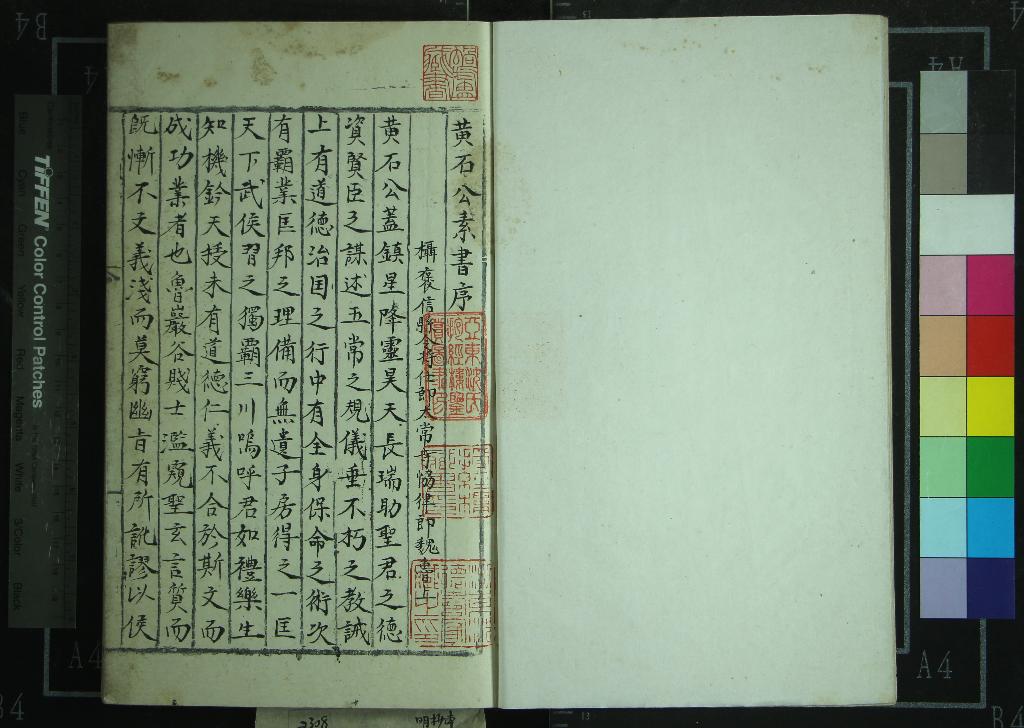 黄石公素書序
攝褒信縣令將仕郎太常寺恊律郎魏魯上
黄石公蓋鎮星降靈昊天長瑞助聖君之德
資賢臣之謀述五常之規儀垂不朽之教誡
上有道德治国之行中有全身保命之術次
有霸業匡邦之理備而無遺子房得之一匡
天下武侯習之獨霸三川嗚呼君如禮樂生
知機鈐天授未有道德仁義不合於斯文而
成功業者也魯巖谷賤士濫窺聖玄言質而
既慚不文義淺而莫窮幽旨有所訛謬以俟
TIFFEN Color Control Patches
Blue
Cyan
Green
Yellow
Red
Magenta
White
3/Color
Black
B4
A4
A4
A4
B4
2308
明抄本